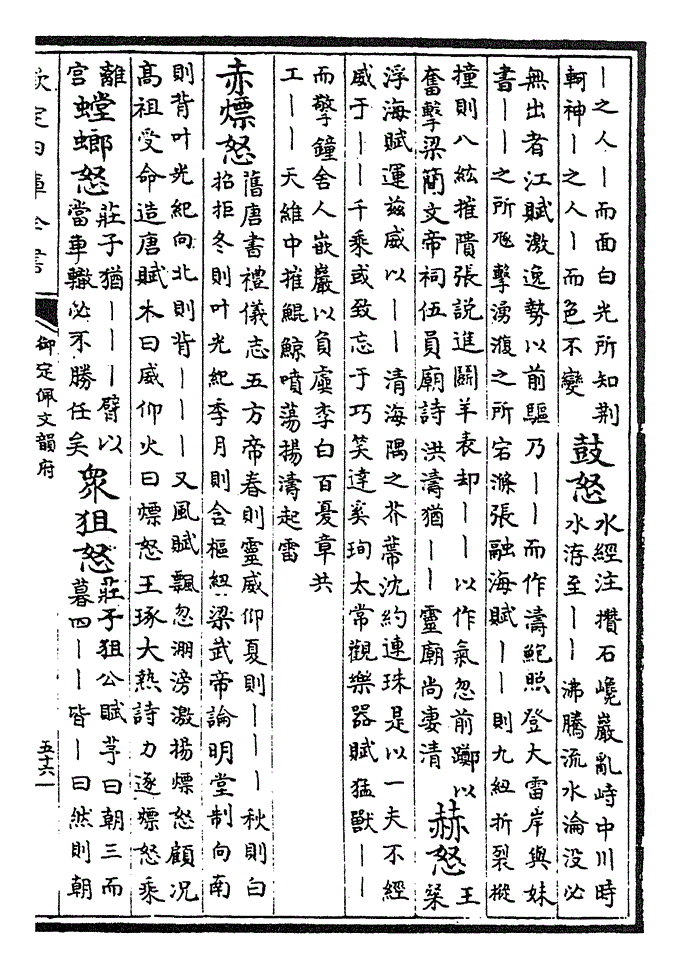 ｜之人｜而面白光所知荆
軻神｜之人｜而色不變
鼓怒
水經注攢石巉巖亂峙中川時
水洊至｜｜沸騰流水淪没必
無出者江賦激逸勢以前驅乃｜｜而作濤鮑照登大雷岸與妹
書｜｜之所豗擊湧澓之所宕滌張融海賦｜｜則九紐折裂樅
撞則八紘摧隤張説進鬭羊表却｜｜以作氣忽前躑以
奮擊梁簡文帝祠伍員廟詩洪濤猶｜｜靈廟尚凄清
赫怒
王
粲
浮海賦運兹威以｜｜清海隅之芥蔕沈約連珠是以一夫不經
威于｜｜千乘或致忘于巧笑達奚珣太常觀樂器賦猛獸｜｜
而擎鐘舍人嵌巖以負虛李白百憂章共
工｜｜天維中摧鯤鯨噴蕩揚濤起雷
赤熛怒
舊唐書禮儀志五方帝春則靈威仰夏則｜｜｜秋則白
招拒冬則叶光紀季月則含樞紐梁武帝論明堂制向南
則背叶光紀向北則背｜｜｜又風賦飄忽淜滂激揚熛怒顧况
高祖受命造唐賦木曰威仰火曰熛怒王琢大熱詩力逐熛怒乘
離
宮
螳螂怒
莊子猶｜｜｜臂以
當車轍必不勝任矣
衆狙怒
莊子狙公賦芧曰朝三而
暮四｜｜皆｜曰然則朝
欽定四庫全書
御定佩文韻府
五十六一